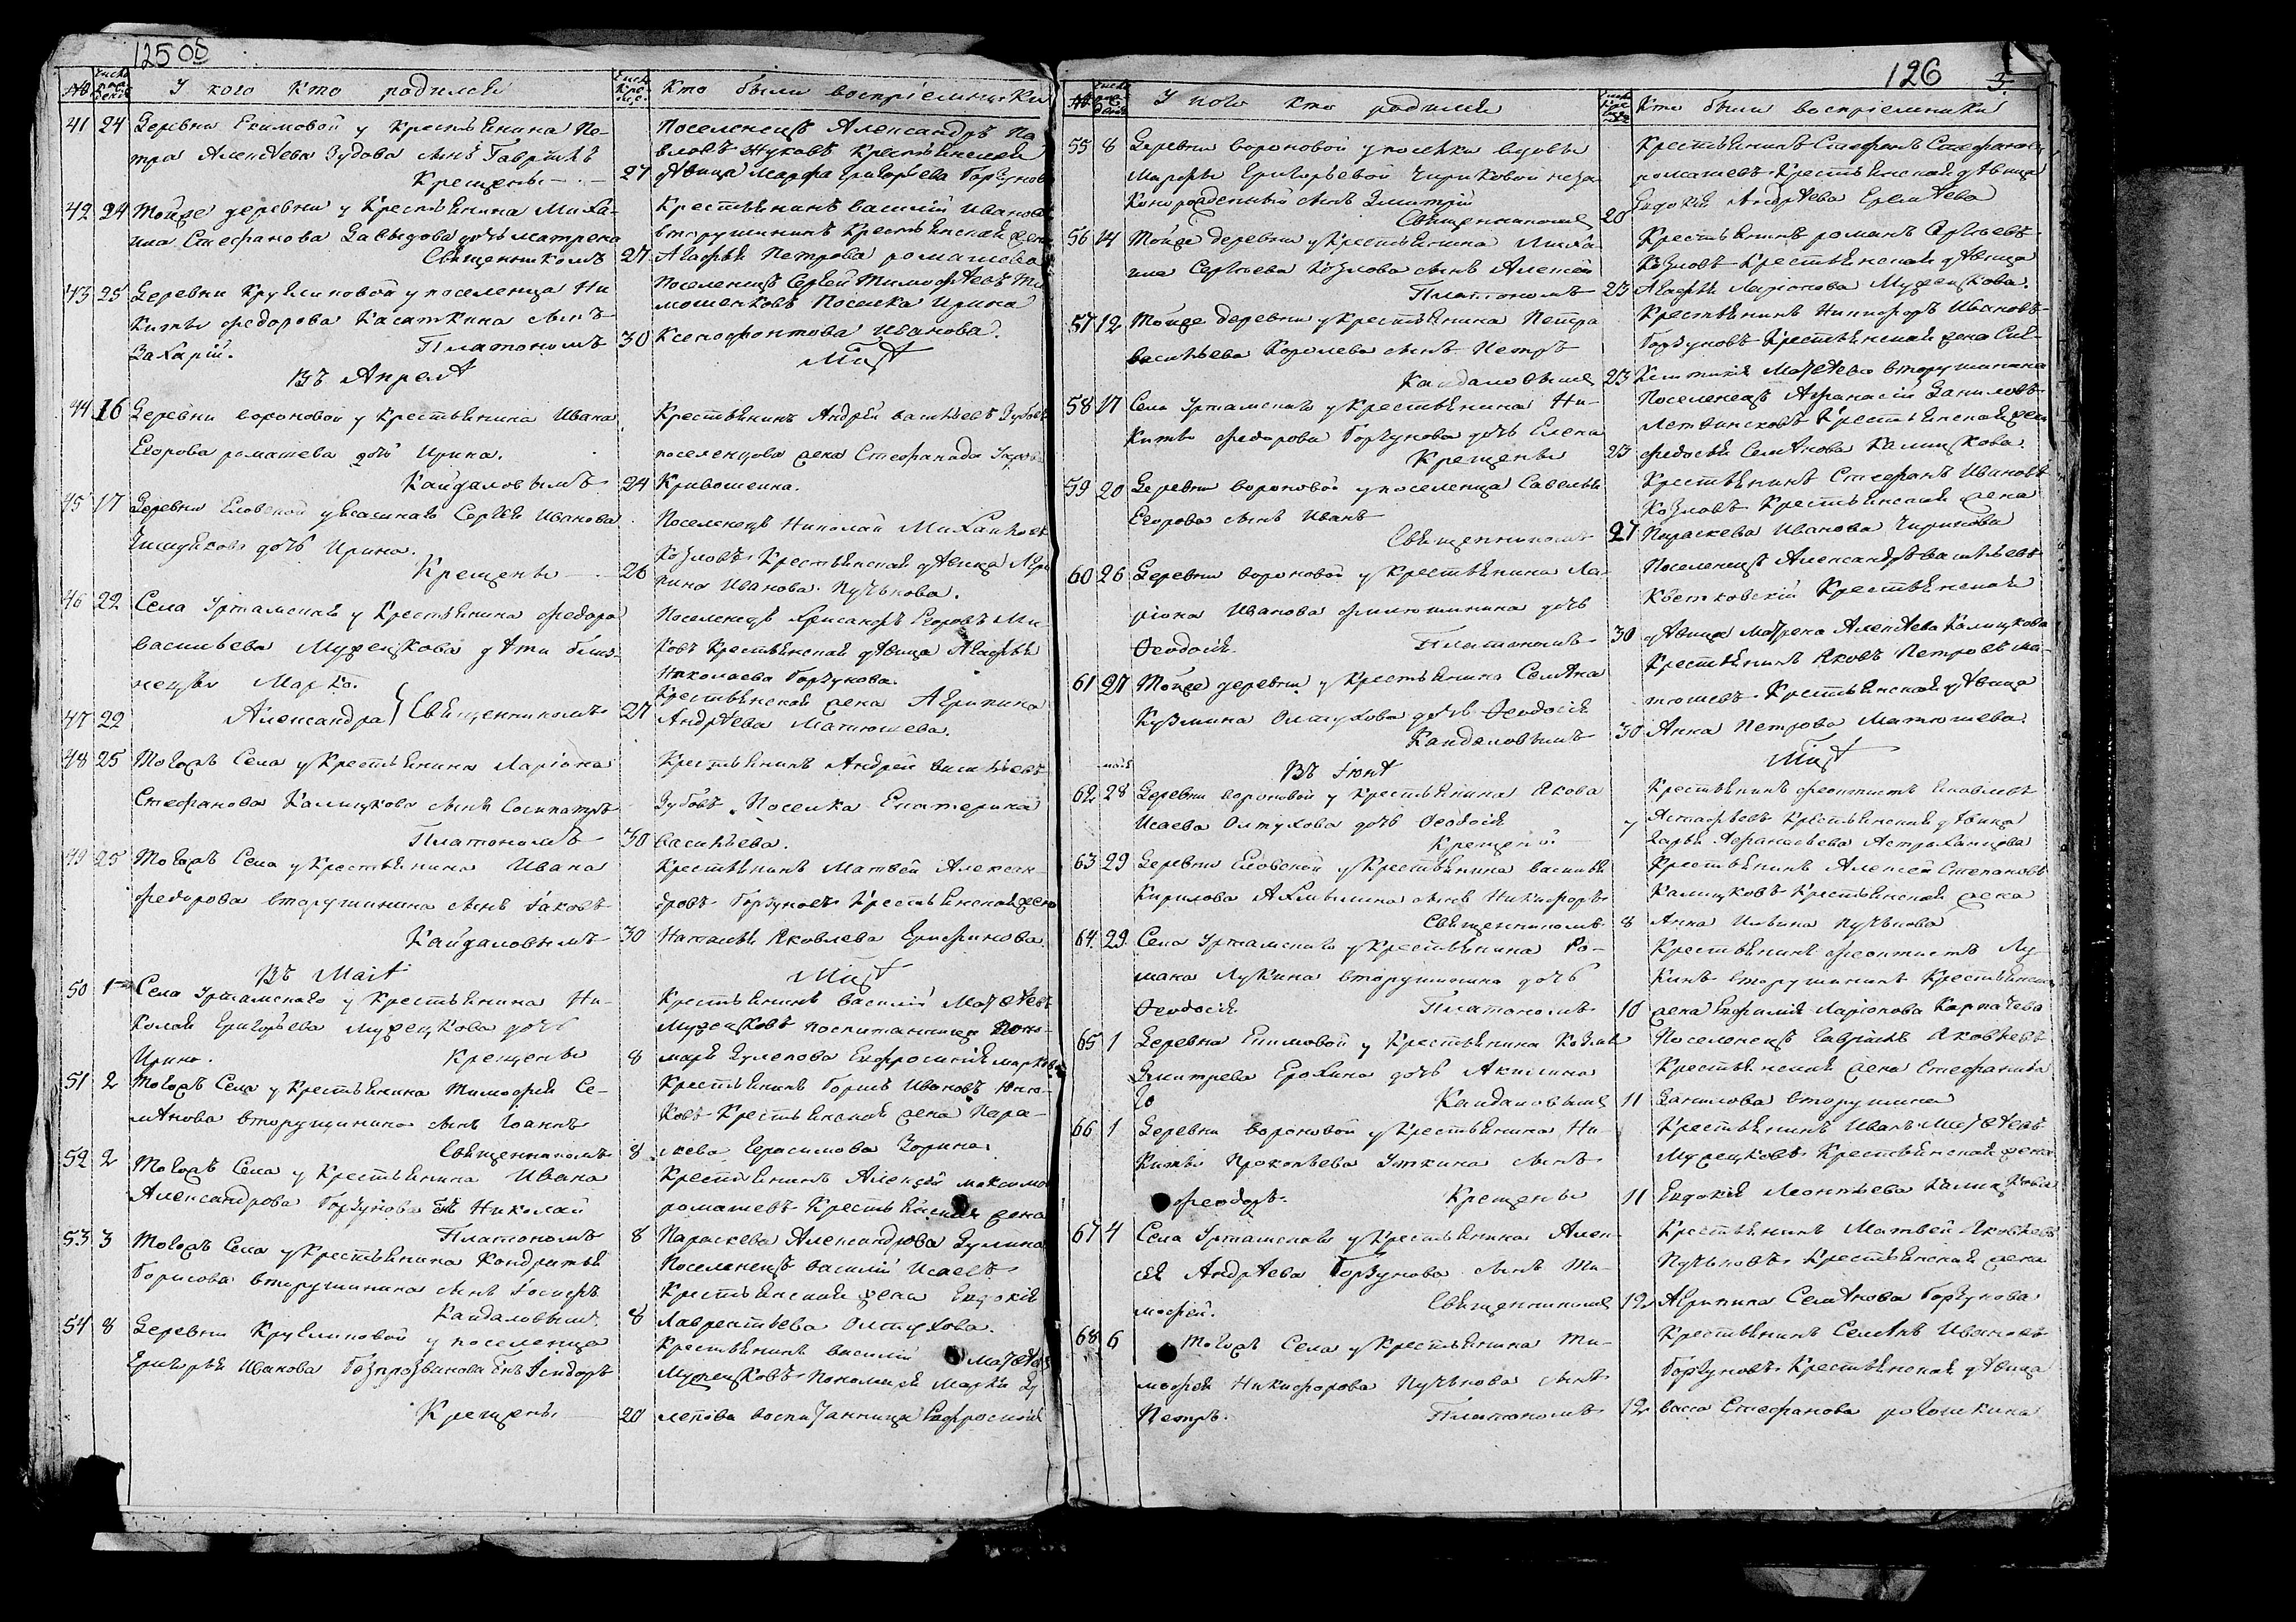 125 об
№ Число рождения У кого кто родился Число креще. Кто были воспріемники
41 24 Деревни Екимовой у крестьянина Пе-
тра Алексѣева Зудова сынъ Гавріилъ
Крещены 27
Поселенецъ Александръ Па
вловъ Жуковъ крестьянская
дѣвица Марфа Григорьева Горбунова
42 24 Тойже деревни у крестьянина Миха-
ила Стефанова Давыдова дочь Матрена
Священникомъ 27
Крестьянинъ василій Ивановъ
вторушинъ крестьянская жена
Агафья Петрова ромашева
43 25 Деревни Кругликовой у поселенца Ни
киты федорова Касаткина сынъ
Захарій. Платономъ 30
Поселенецъ Сергей Тимофѣевъ Ти
мошенковъ Поселка Ирина
Ксенофонтова Иванова.
Въ Апрелѣ
Мцѣ
44 16 Деревни вороновой у крестьянина Ивана
Егорова ромашева дочь Ирина.
Кайдаловымъ 24
Крестьянинъ Андрей васильевъ Зубовъ
поселенцова жена Стефанида
Кривошеина.
45 17 Деревни Еловской у ясашнаго Сергея Иванова
дочь Ирина.
Крещены 26
Поселенецъ Николай Михайловъ
Козловъ крестьянская дѣвица Агри
пина Иванова Пучкова.
46 22 Села Уртамскаго у крестьянина федора
васильева Мурещкова дѣти близ-
нецы Марѳа.
47 22 Александра } Священникомъ 27
Поселенецъ Хрисанфъ Егоровъ Ми-
ковъ крестьянская дѣвица Агафья
Николаева Горбунова.
Крестьянская жена Агрипина
Андрѣева Матюшева.
48 25 Тогожъ Села у крестьянина Ларіона
Стефанова Калицкова сынъ Сосипатръ
Платономъ 30
Крестьянинъ Андрей васильевъ
Зубовъ Поселка Екатерина
васильева.
49 25 Тогожъ Села у крестьянина Ивана
федорова вторушинина сынъ Іаковъ
Кайдаловымъ 30
Крестьянинъ Матвей Алексан-
дровъ Горбуновъ крестьянская жена
Наталья Яковлева
Въ Маіѣ
Мцѣ
50 1 Села Уртамскаго у крестьянина Ни-
колая Григорьева Мурещкова дочь
Ирина. Крещены 8
Крестьянинъ василій Матѳѣевъ
Мурещковъ воспитанница поно-
маря Зулепова Евфросинія маркова
51 2 Тогожъ Села у крестьянина Тимофея Се-
мѣнова вторушинина сынъ Іоаннъ
Священникомъ 8
Крестьянинъ Борисъ Ивановъ
ковъ крестьянская жена Пара-
скева Герасимова Зорина.
52 2 Тогожъ Села у крестьянина Ивана
Александрова Горбунова снъ Николай
Платономъ 8
Крестьянинъ Алексѣй максимо
ромашевъ крестьянская жена
Параскева Александрова
53 3 Тогожъ Села у крестьянина Кондратья
Борисова вторушинина сынъ Іосифъ
Кандаловымъ 8
Поселенецъ василій Исаевъ
Крестьянская жена Евдокія
Лаврентьева Олтухова.
54 8 Деревни Кругликовой у поселенца
Григорья Иванова Безпрозванова снъ Исидоръ
Крещены 20
Крестьянинъ василій Матѳѣевъ
Мурещковъ Пономаря Марка Зу
лепова воспитанница Евфросинія
126
3.
№ У кого кто родился Кто были воспріемники
55 8 Деревни вороновой у поселки вдовы
Марфы Григорьевой Чириковой неза
коннорожденный сынъ Димитрій
Священникомъ 20
Крестьянинъ Стефанъ Стефановъ
ромашевъ крестьянская дѣвица
Евдокія Андрѣева Еремѣева
56 14 Тойже деревни у крестьянина Миха-
ила Сергѣева Козлова сынъ Алексѣй
Платономъ 23
Крестьянинъ романъ Сергѣевъ
Козловъ крестьянская дѣвица
Агафья Ларіонова Мурещкова.
57 12 Тойже деревни у крестьянина Петра
васильева Королева сынъ Петръ
Кандаловымъ 23
Крестьянинъ Никифоръ Ивановъ
Горбуновъ крестьянская жена Син-
клитикія Матѳѣева вторушинина
58 17 Села Уртамскаго у крестьянина Ни-
киты федорова Горбунова дочь Елена
Крещены 23
Поселенецъ Афанасій Даниловъ
крестьянская жена
федосья Семѣнова Калицкова.
59 20 Деревни вороновой у поселенца Савелья
Егорова сынъ Иванъ
Священникомъ 27
Крестьянинъ Стефанъ Ивановъ
Козловъ крестьянская жена
Параскева Иванова Чирикова
60 26 Деревни вороновой у крестьянина Ла-
ріона Иванова филюшинина дочь
Ѳеодосія. Платономъ 30
Поселенецъ Александръ васильевъ
Костковскій крестьянская
дѣвица Матрена Алексѣева Калицкова
61 27 Тойже деревни у крестьянина Семѣна
Кузмина Олтухова дочь Ѳеодосія
Кандаловымъ 30
Крестьянинъ Яковъ Петровъ ма-
тюшевъ крестьянская дѣвица
Анна Петрова Матюшева.
Въ Іюнѣ
Мцѣ
маія
62 28 Деревни вороновой у крестьянина Якова
Исаева Олтухова дочь Ѳеодосія
Крещены 7
Крестьянинъ феоктистъ Яковлевъ
Астафьевъ крестьянская дѣвица
Дарья Афанасьева Астраханцова
63 29 Деревни Еловской у крестьянина василья
Кирилова сынъ Никифоръ
Священникомъ 8
Крестьянинъ Алексѣй Степановъ
Калицковъ крестьянская жена
Анна Ильина Пучкова
64 29 Села Уртамскаго у крестьянина Ро-
мана Лукина вторушинина дочь
Ѳеодосія Платономъ 10
Крестьянинъ феоктистъ Лу-
кинъ вторушинъ крестьянская
жена Евфимія Ларіонова Карпачева
65 1 Деревни Екимовой у крестьянина Козмы
Дмитрева Ерохина дочь Акилина
Кандаловымъ 11
Поселенецъ Гавріилъ Яковлевъ
Крестьянская жена Стефанида
Данилова вторушина
66 1 Деревни вороновой у крестьянина Ни
киты Прокопьева Уткина сынъ
феодоръ. Крещены 11
Крестьянинъ Иванъ Матѳѣевъ
Мурещковъ крестьянская жена
Евдокія Леонтьева Калицкова
67 4 Села Уртамскаго у крестьянина Алек-
сѣя Андрѣева Горбунова сынъ Ти-
мофей. Священникомъ 12
Крестьянинъ Матвей Яковлевъ
Пучковъ крестьянская жена
Агрипина Семѣнова Горбунова
68 6 Тогожъ Села у крестьянина Ти-
мофея Никифорова Пучкова сынъ
Петръ. Платономъ 12
Крестьянинъ Семѣнъ Ивановъ
Горбуновъ крестьянская дѣвица
васса Стефанова рогошкина